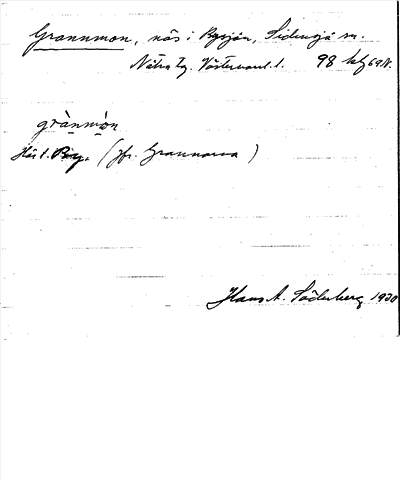 Grannmon, näs i Bysjön, Sidensjö sn.
Nätra tg. Västernorrl. l. 98
grànmòn
Hör t. By. (jfr. Grannarna)
Hans A. Söderberg 1930